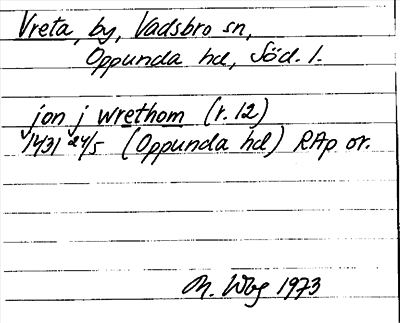 Vreta, by, Vadsbro sn,
Oppunda hd, Söd. l.
jon j wrethom (r. 12)
1431 24/5 (Oppunda hd) RAp or.
M. Wbg 1973